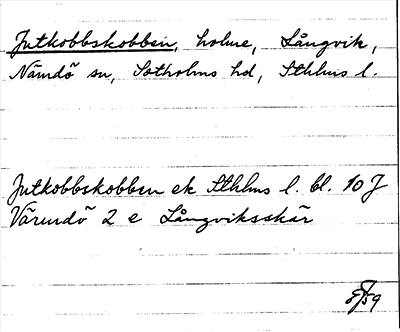 Jutkobbskobben, holme, Långvik,
Nämdö sn, Sotholms hd, Sthlms l.
Jutkobbskobben ek Sthlms l. bl. 10 J
Värmdö 2 e Långviksskär
59